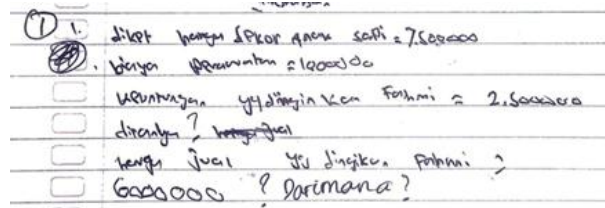 ① 1. diket harga seekor anak sapi = 7.500000
biaya perawatan = 1000000
keuntungan yg diinginkan Fahmi = 2.500000
ditanya ?
harga jual yg diinginkan Fahmi ?
6000000 ? Darimana ?